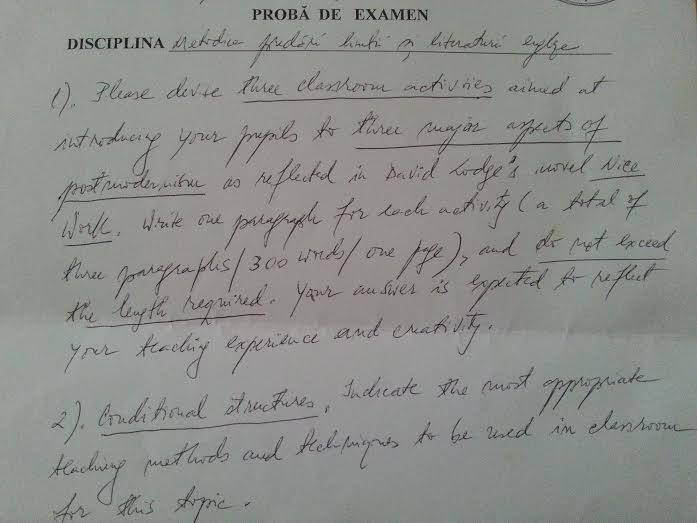 PROBĂ DE EXAMEN
DISCIPLINA Metodica predării limbii și literaturii engleze
1). Please devise three classroom activities aimed at
introducing your pupils to three major aspects of
postmodernism as reflected in David Lodge's novel Nice
Work. Write one paragraph for each activity (a total of
three paragraphs/300 words/one page), and do not exceed
the length required. Your answer is expected to reflect
your teaching experience and creativity.
2). Conditional structures. Indicate the most appropriate
teaching methods and techniques to be used in classroom
for this topic.